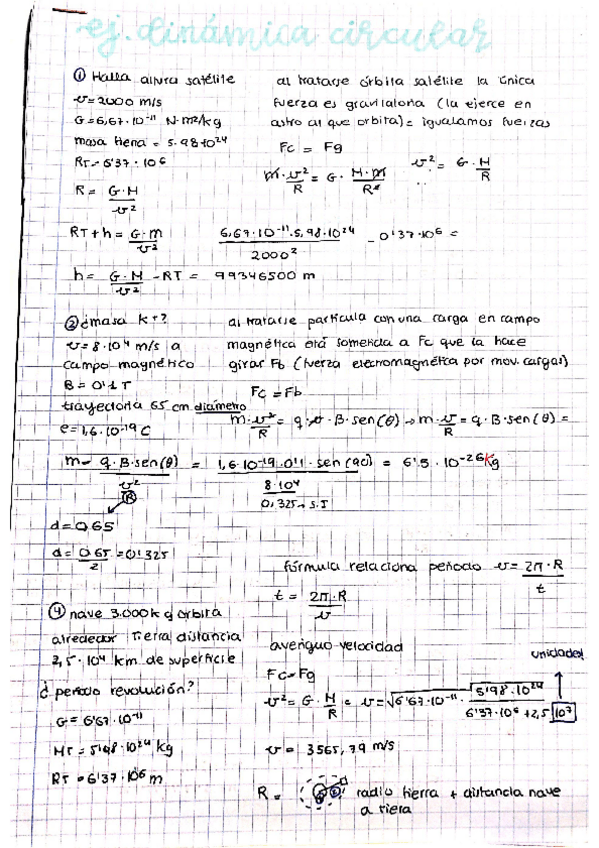 ej. dinámica circular
① Halla altura satélite
v = 2000 m/s
G = 6,67·10⁻¹¹ N·m²/kg
masa tierra = 5.98·10²⁴
RT = 6'37·10⁶
R = G·M / v²
RT + h = G·m / v²
h = G·M / v² - RT = 99346500 m
al tratarse órbita satélite la única
fuerza es gravitatoria (la ejerce en
astro al que orbita) = igualamos fuerzas
Fc = Fg
m·v² / R = G· M·m / R² v² = G·M / R
6,67·10⁻¹¹·5,98·10²⁴ / 2000² - 0'37·10⁶ =
② ¿masa K+?
v = 8·10⁴ m/s a
campo magnético
B = 0'1 T
trayectoria 65 cm diámetro
e = 1,6·10⁻¹⁹ C
al tratarse partícula con una carga en campo
magnético está sometida a Fc que la hace
girar Fb (fuerza electromagnética por mov. cargas)
Fc = Fb
m·v² / R = q·v·B·sen(θ) → m·v / R = q·B·sen(θ) =
m = q·B·sen(θ) / v² / R = 1,6·10⁻¹⁹·0'1·sen(90) / 8·10⁴ / 0,325 → S.I = 6'5·10⁻²⁶ kg
d = 0,65
d = 0,65 / 2 = 0'325
fórmula relaciona periodo v = 2π·R / t
t = 2π·R / v
④ nave 3.000 kg orbita
alrededor tierra distancia
2,5·10⁴ km de superficie
¿periodo revolución?
G = 6'67·10⁻¹¹
MT = 5'98·10²⁴ kg
RT = 6'37·10⁶ m
averiguo velocidad
unidades
Fc = Fg
v² = G·M / R = v = √6'67·10⁻¹¹· 5'98·10²⁴ / 6'37·10⁶ + 2,5 10⁷
v = 3565,79 m/s
R = radio tierra + distancia nave
a tiera